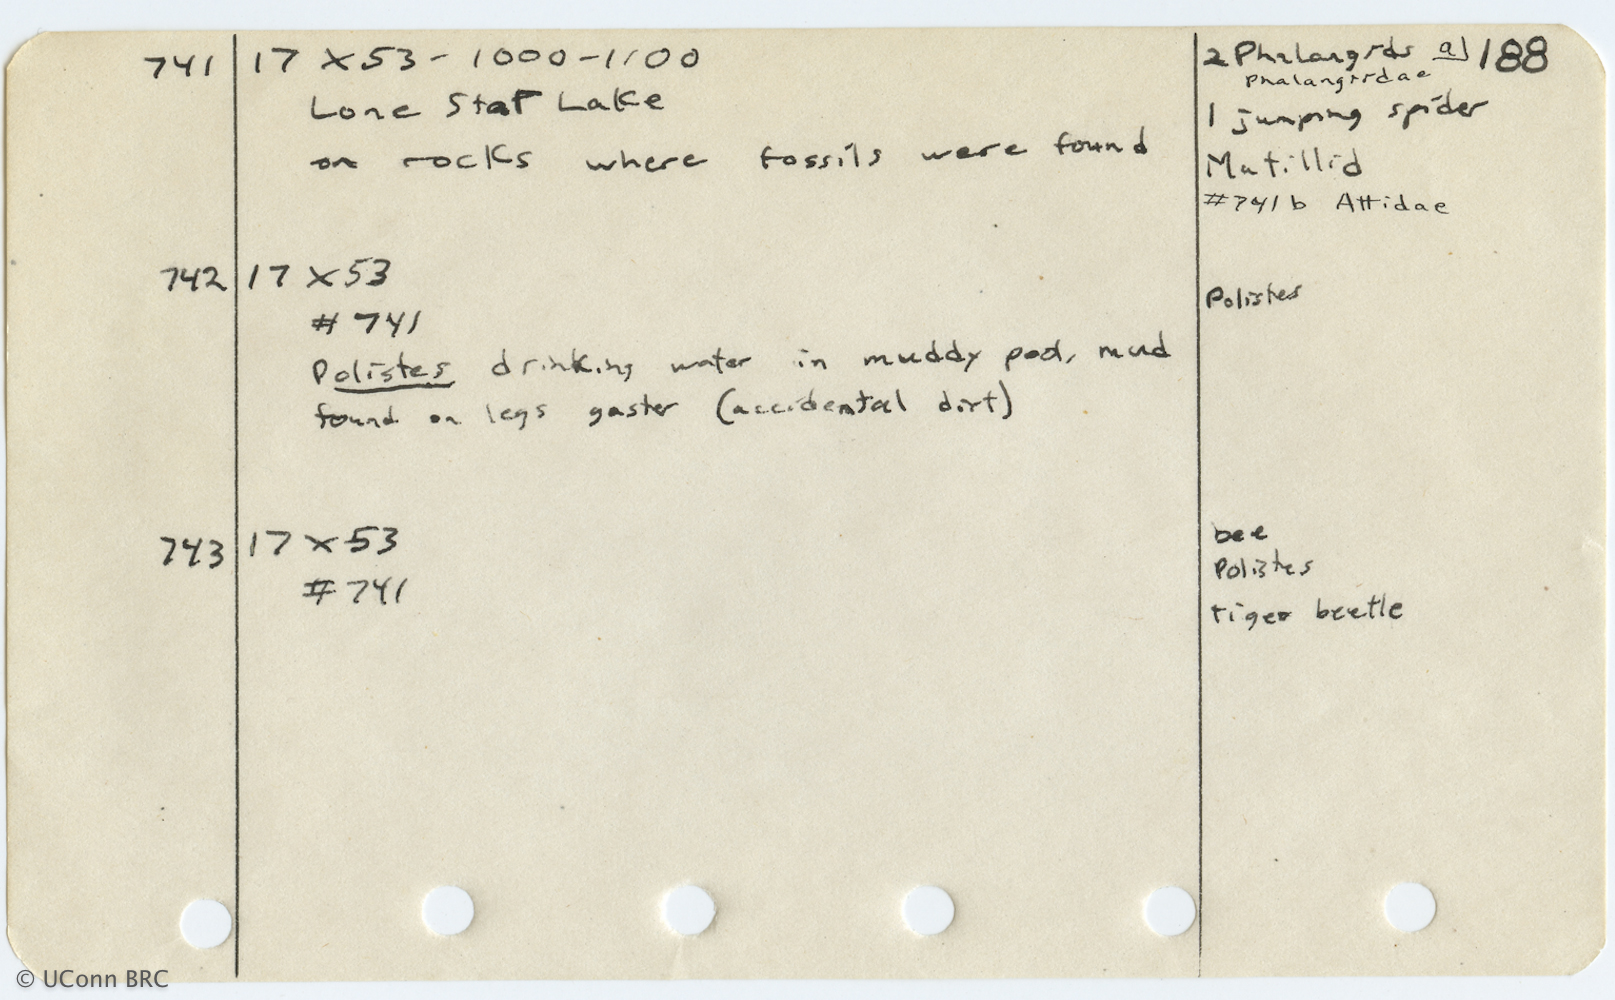 741 17 X 53 - 1000-1100
Lone Star Lake
on rocks where fossils were found
2 Phalangids a) 188
Phalangiidae
1 jumping spider
Mutillid
#741b Attidae
742 17 X 53
# 741
Polistes drinking water in muddy pool, mud
found on legs gaster (accidental dirt)
Polistes
743 17 X 53
# 741
bee
Polistes
tiger beetle
© UConn BRC